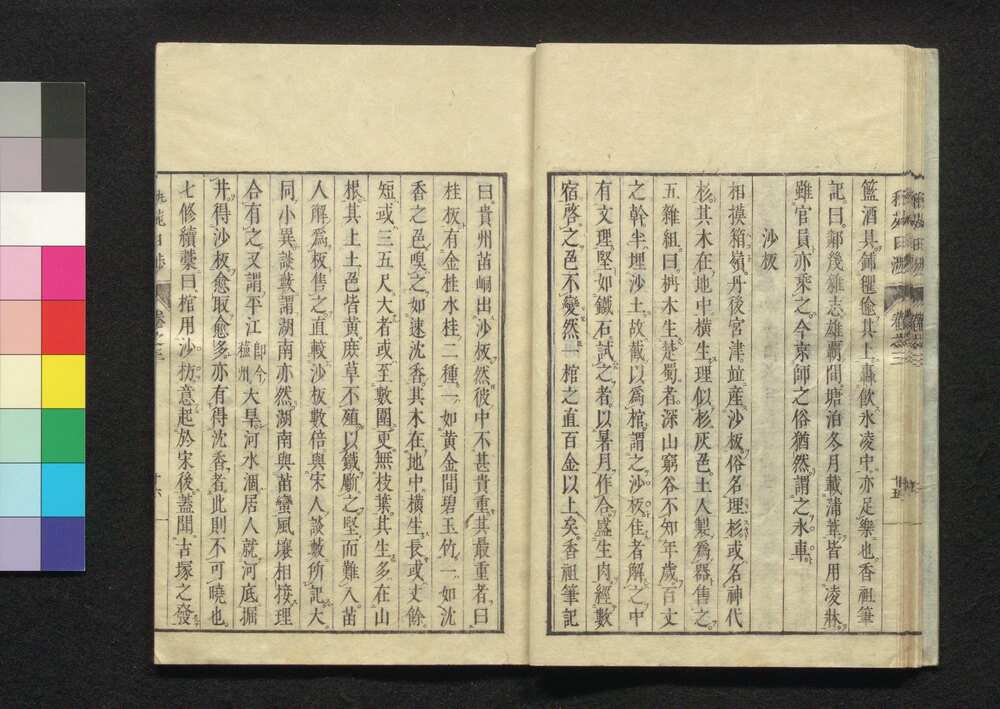 籃酒具鋪氍偷其上轟飲氷凌中亦足樂也香祖筆
記曰鄚幾雜志雄覇間塘泊冬月載蒲葦皆用凌牀
雖官員亦乘之今京師之俗猶然謂之氷車
沙板
相摸箱嶺丹後宮津竝産沙板俗名埋杉或名神代
杉其木在地中横生理似杉灰色土人製爲器售之
五雜組曰枬木生楚蜀者深山窮谷不知年歳百丈
之幹半埋沙土故截以爲棺謂之沙板佳者解之中
有文理堅如鐵石試之者以暑月作合盛生肉經數
宿啓之色不變然一棺之直百金以上矣香祖筆記
曰貴州苗峒出沙板然彼中不甚貴重其最重者曰
桂板有金桂水桂二種一如黄金間碧玉竹一如沈
香之色嗅之如速沈香其木在地中横生長或丈餘
短或三五尺大者或至數圍更無枝葉其生多在山
根其上土色皆黄庶草不殖以鐵驗之堅而難入苗
人解爲板售之直較沙板數倍與宋人談藪所記大
同小異談藪謂湖南亦然湖南與苗蠻風壤相接理
合有之又謂平江即今蘓州大旱河水涸居人就河底掘
井得沙板愈取愈多亦有得沈香者此則不可曉也
七修續藁曰棺用沙枋意起於宋後蓋聞古塚之發
卷之三